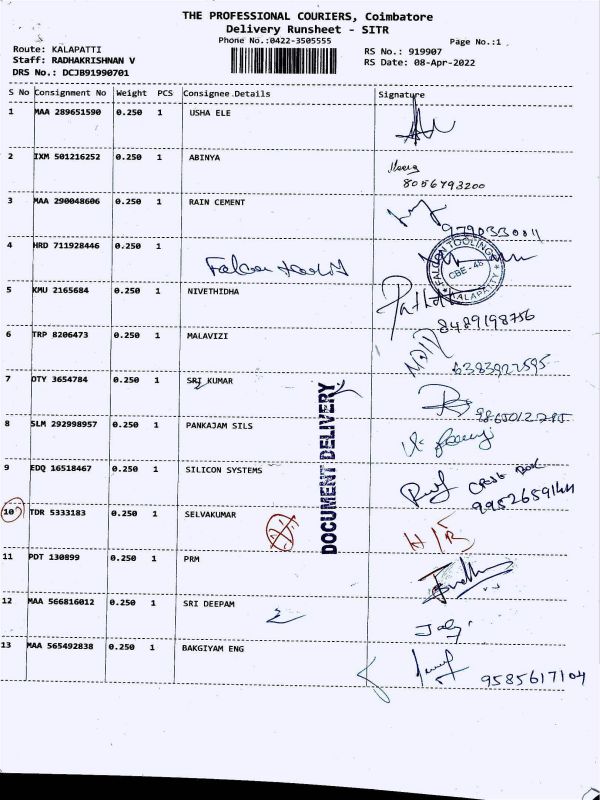 THE PROFESSIONAL COURIERS, Coimbatore
Delivery Runsheet - SITR
Phone No.:0422-3505555 Page No.:1
Route: KALAPATTI RS No.: 919907
Staff: RADHAKRISHNAN V RS Date: 08-Apr-2022
DRS No.: DCJB91990701
S No Consignment No Weight PCS Consignee Details Signature
1 MAA 289651590 0.250 1 USHA ELE
2 IXM 501216252 0.250 1 ABINYA
8056793200
3 MAA 290048606 0.250 1 RAIN CEMENT
9790330011
4 HRD 711928446 0.250 1
Falcon
FALCON TOOLINGS
CBE - 48
KALAPATTY
5 KMU 2165684 0.250 1 NIVETHIDHA
8489198756
6 TRP 8206473 0.250 1 MALAVIZI
6383922595
7 OTY 3654784 0.250 1 SRI KUMAR
8 SLM 292998957 0.250 1 PANKAJAM SILS
9 EDQ 16518467 0.250 1 SILICON SYSTEMS
DOCUMENT DELIVERY
10 TDR 5333183 0.250 1 SELVAKUMAR
11 PDT 130899 0.250 1 PRM
12 MAA 566816012 0.250 1 SRI DEEPAM
13 MAA 565492838 0.250 1 BAKGIYAM ENG
9585617104